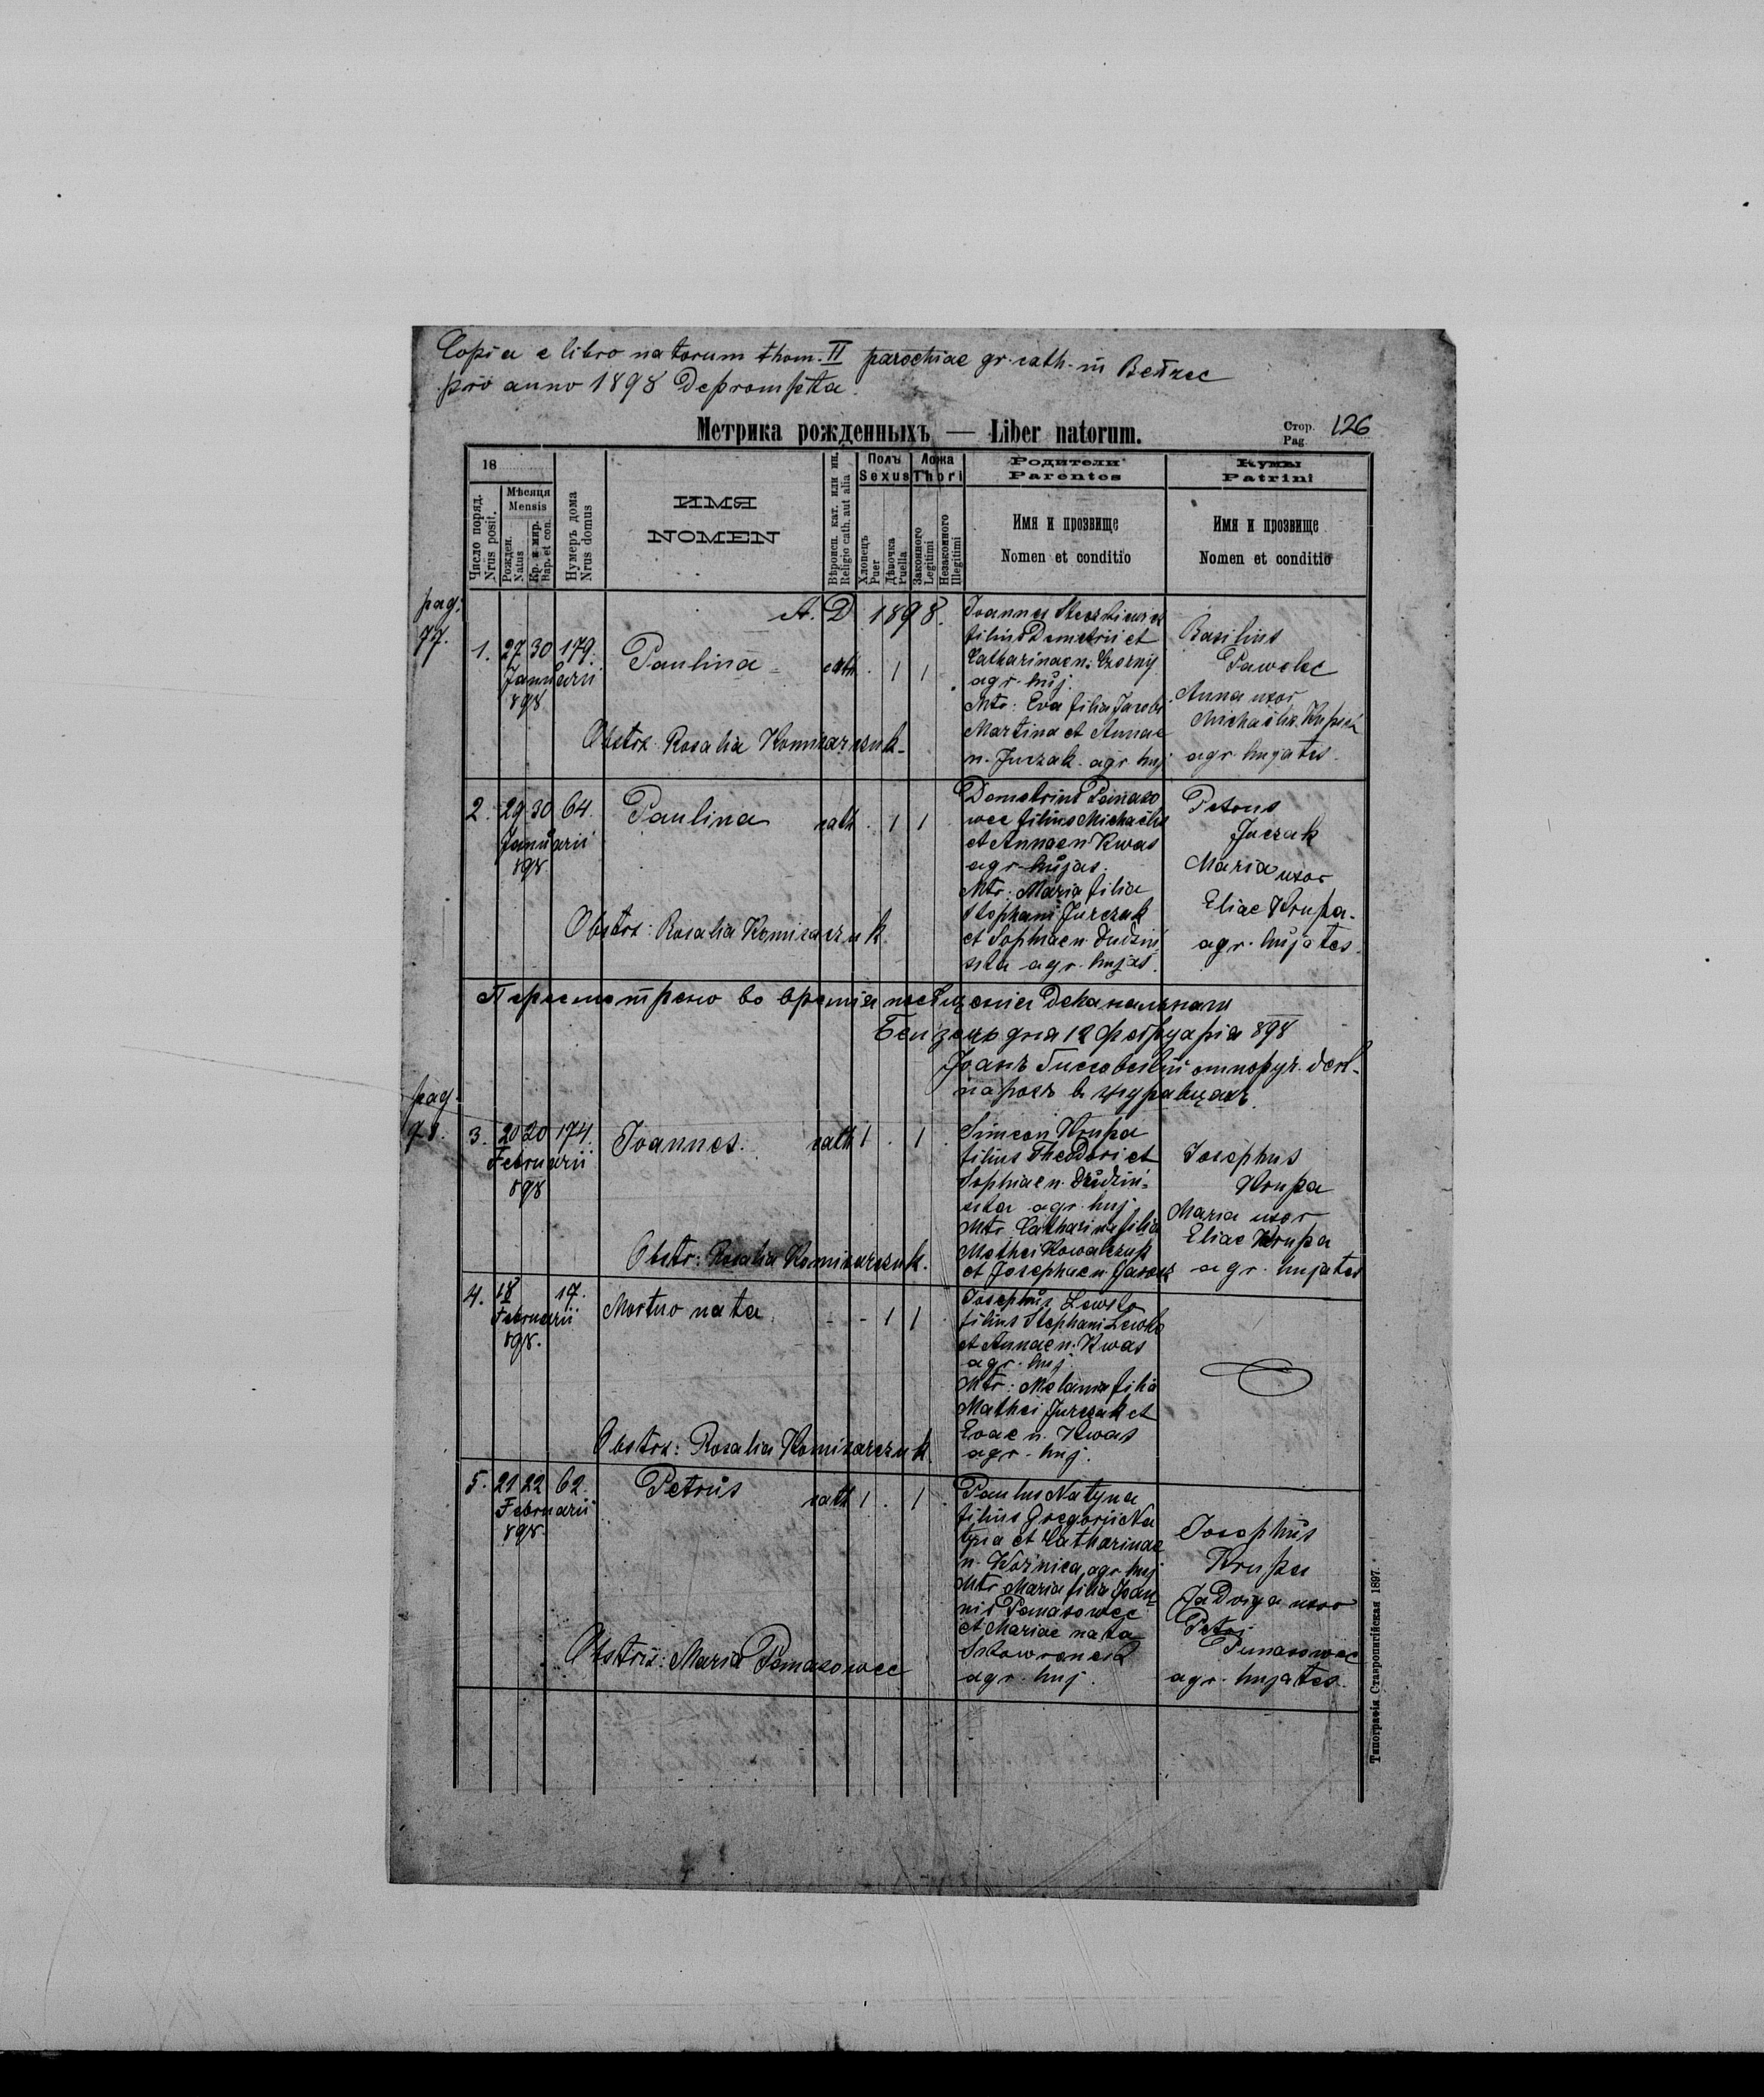 Copia e libro natorum thom. II parochiae gr. cath. in Bełzec
pro anno 1898 Deprompta.
Метрика рожденныхъ — Liber natorum.
Стор. Pag. 126
18
Число поряд. Nrus posit.
Мѣсяця Mensis
Рожден. Natus
Кр. и мѵр. Bap. et con.
Нумеръ дома Nrus domus
ИМЯ
NOMEN
Вѣроисп. кат. или ин. Religio cath. aut alia
Полъ Sexus
Хлопецъ Puer
Дѣвочка Puella
Ложа Thori
Законного Legitimi
Незаконного Illegitimi
Родители
Parentes
Имя и прозвище
Nomen et conditio
Кумы
Patrini
Имя и прозвище
Nomen et conditio
A. D. 1898.
pag:
77.
1. 27 30 179. Paulina cath . 1 1
Januarii
898
Joannes
filius Demetrii et
Catharinae n.
agr. huj.
Mtr: Eva filia Jacobi
Martina et Annae
n. Jurzak. agr. huj
Basilius
Pawelec
Anna uxor
Michaelis
agr. hujates.
Obstrx: Rosalia Komisarczuk
2. 29 30 64. Paulina cath . 1 1
Januarii
898
Demetrius Pomaso
wec filius Michaelis
et Annae n. Kwas
agr. hujas.
Mtr: Maria filia
Stephani Jurczak
et Sophiae n. Dudziń
ska agr. hujas.
Petrus
Jurczak
Maria uxor
Eliae Krupa.
agr. hujates.
Obstrx: Rosalia Komisarczuk.
Пересмотрено во время посѣщенія деканального
Белзець дня 12 фебруарія 898
Іоанъ
парохъ в
pag.
78. 3. 20 20 174. Joannes. cath 1 . 1
Februarii
898
Simeon Krupa
filius Theodori et
Sophiae n. Dudziń-
ska agr. huj
Mtr. Catharina filia
Mathei Kowalczuk
et Josephae n.
Josephus
Krupa
Maria uxor
Eliae Krupa
agr. hujates
Obstr: Rosalia Komisarczuk.
4. 18 17. Mortuo nata. - - 1 1
Februarii
898.
Josephus Lewko
filius Stephani Lewko
et Annae n. Kwas
agr. huj.
Mtr: Melania filia
Mathei Jurczak et
Evae n. Kwas
agr. huj.
Obstrx: Rosalia Komisarczuk.
5. 21 22 62. Petrus cath 1 . 1
Februarii
898.
Paulus Natyna
filius Gregorii Na
tyna et Catharinae
n. Woźnica, agr. huj
Mtr Maria filia Joan
nis Pomasowec
et Mariae nata
Skowronek
agr. huj.
Josephus
Krupa
Jadviga uxor
Petri
Pomasowec
agr. hujates.
Obstrix: Maria Pomasowec
Типографія Ставропигійская 1897.